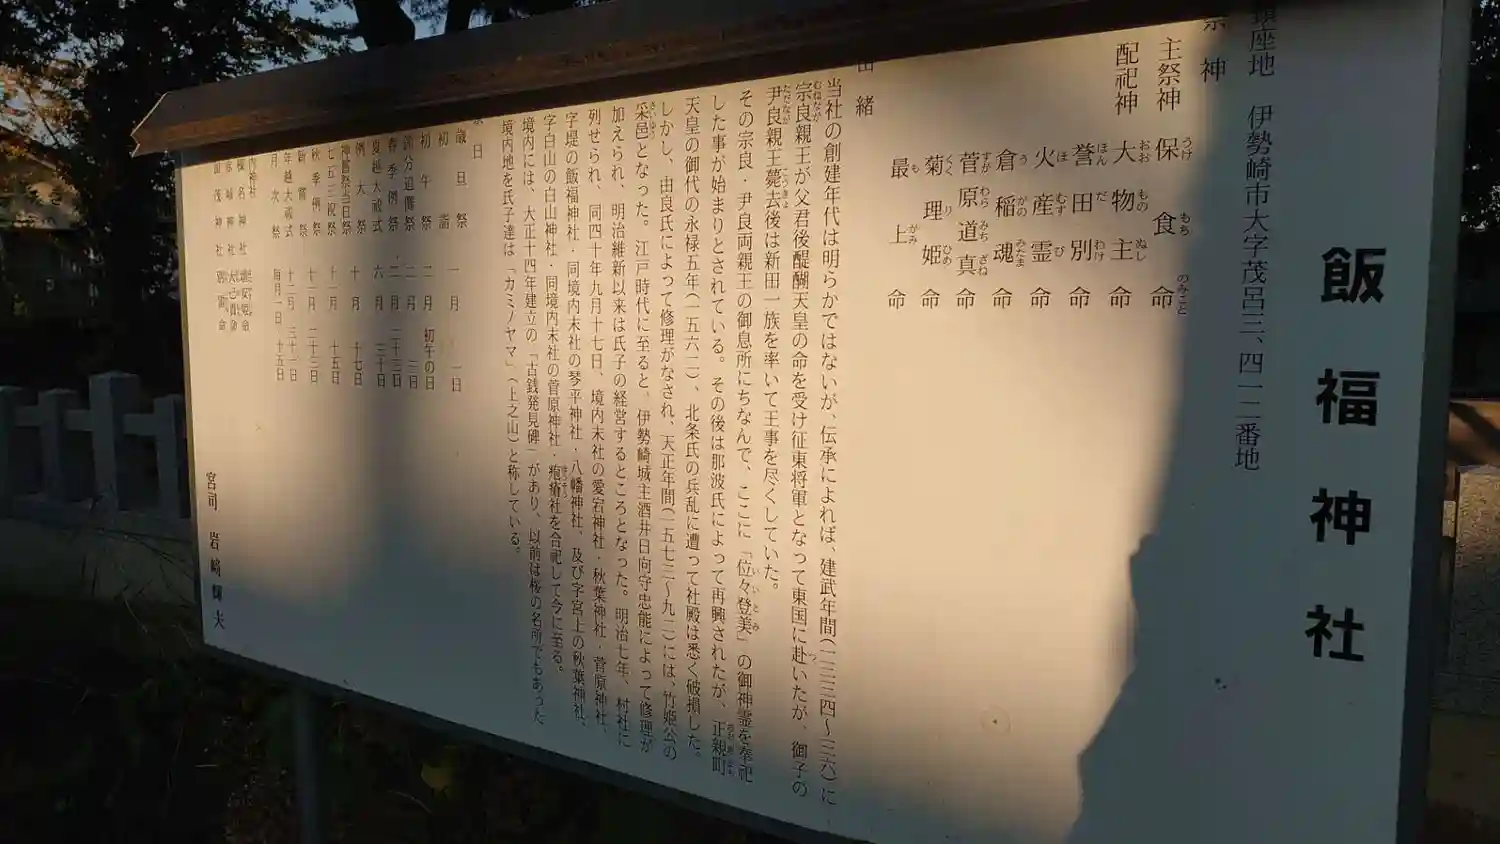 飯福神社
鎮座地　伊勢崎市大字茂呂三、四一二番地
祭神
主祭神　保食命
配祀神　大物主命
誉田別命
火産霊命
倉稲魂命
菅原道真命
菊理姫命
最上命
由緒
当社の創建年代は明らかではないが、伝承によれば、建武年間（一三三四～三六）に
宗良親王が父君後醍醐天皇の命を受け征東将軍となって東国に赴いたが、御子の
尹良親王薨去後は新田一族を率いて王事を尽くしていた。
その宗良・尹良両親王の御息所にちなんで、ここに「位々登美」の御神霊を奉祀
した事が始まりとされている。その後は那波氏によって再興されたが、正親町
天皇の御代の永禄五年（一五六二）、北条氏の兵乱に遭って社殿は悉く破損した。
しかし、由良氏によって修理がなされ、天正年間（一五七三～九二）には、竹姫公の
采邑となった。江戸時代に至ると、伊勢崎城主酒井日向守忠能によって修理が
加えられ、明治維新以来は氏子の経営するところとなった。明治七年、村社に
列せられ、同四十年九月十七日、境内末社の愛宕神社・秋葉神社・菅原神社、
字堤の飯福神社・同境内末社の琴平神社・八幡神社、及び字宮上の秋葉神社、
字白山の白山神社・同境内末社の菅原神社・疱瘡社を合祀して今に至る。
境内には、大正十四年建立の「古銭発見碑」があり、以前は桜の名所でもあった
境内地を氏子達は「カミノヤマ」（上之山）と称している。
祭日
歳旦祭　一月　一日
初詣
初午祭　二月　初午の日
節分追儺祭　二月　三日
春季例祭　二月　二十三日
夏越大祓式　六月　三十日
例大祭　十月　十七日
神嘗祭当日祭
七五三祝祭　十一月　十五日
秋季例祭　十一月　二十三日
新嘗祭
年越大祓式　十二月　三十一日
月次祭　毎月一日　十五日
境内神社
榛名神社
宮司　岩﨑輝夫